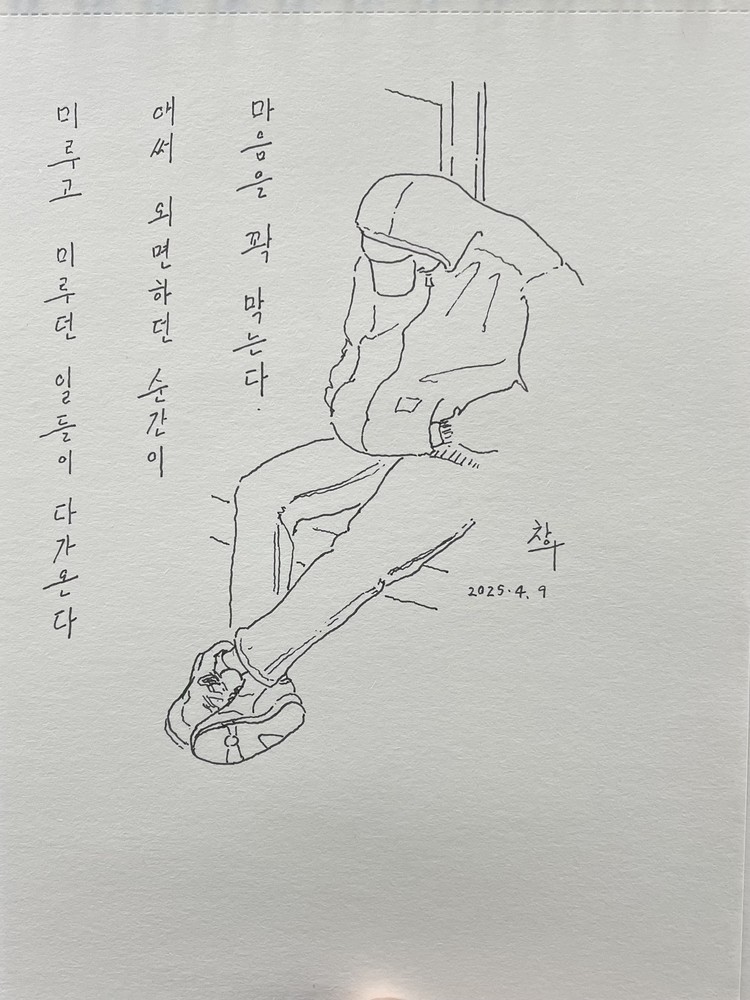 미루고 미루던 일들이 다가온다
애써 외면하던 순간이
마음을 꽉 막는다.
2025.4.9